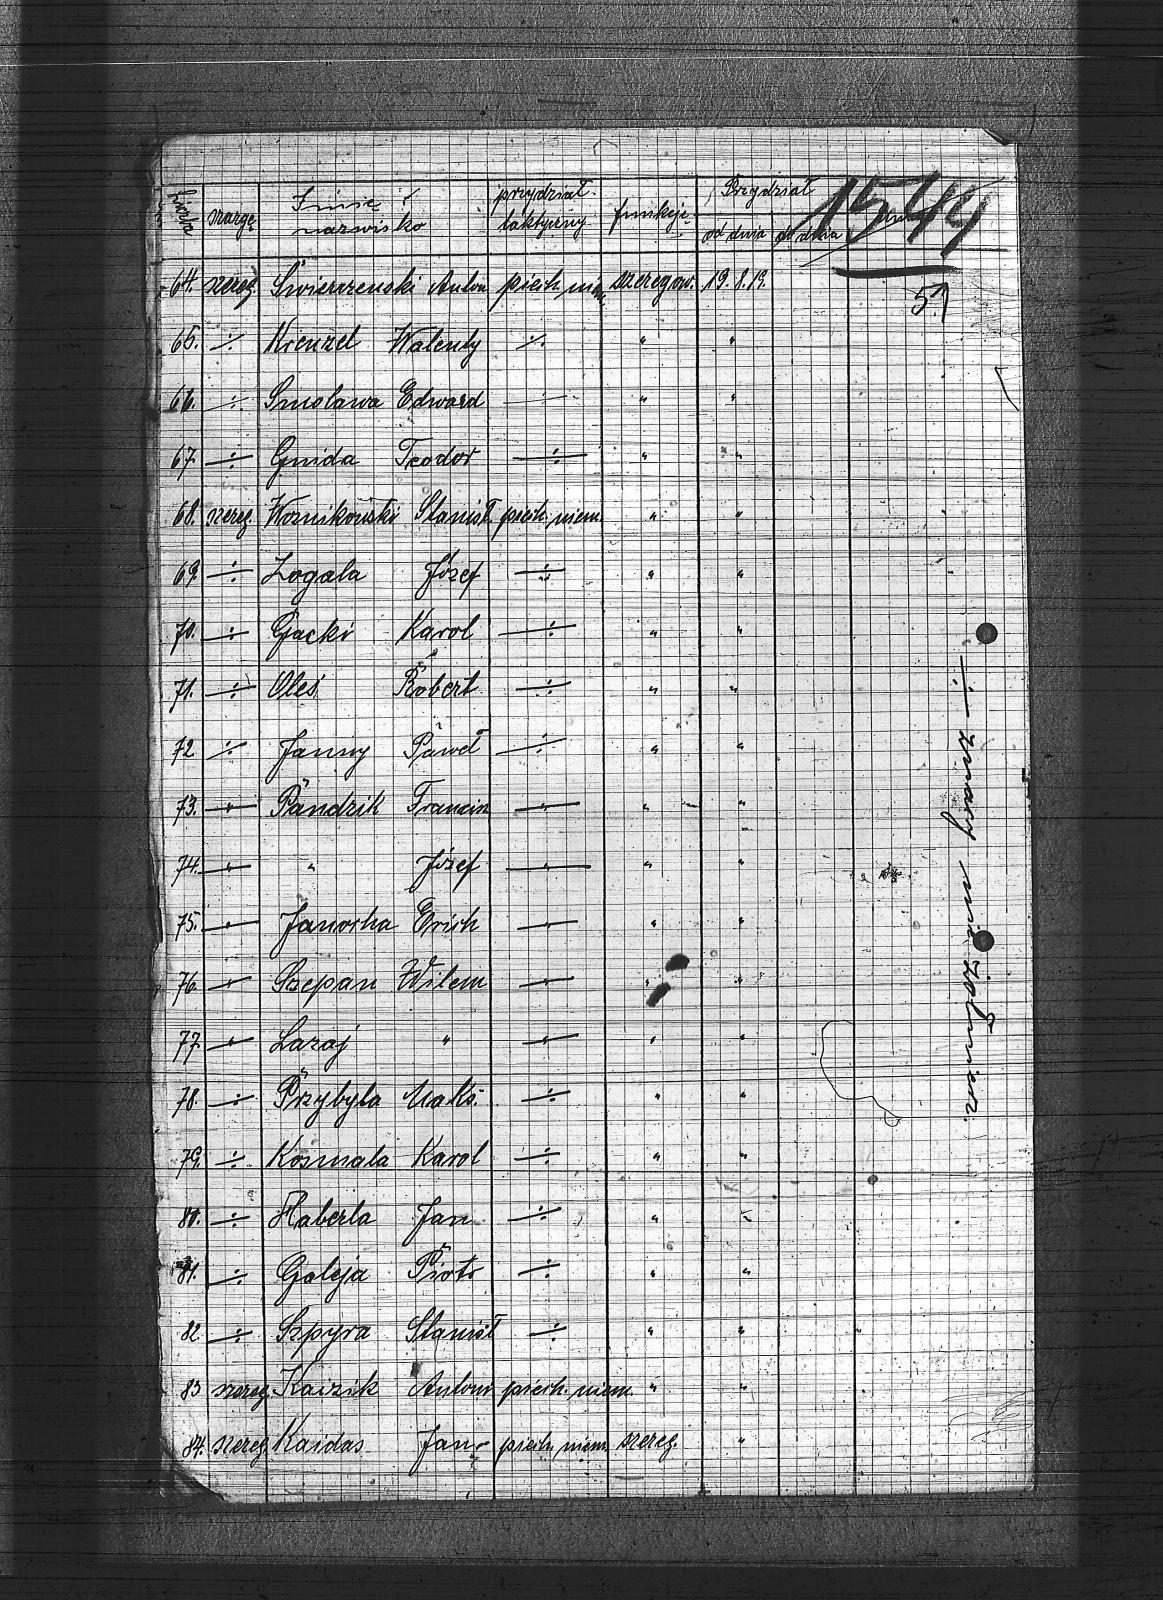 liczba szarge Imię i nazwisko przydział taktyczny funkcje Przydział 1544
od dnia do dnia
57
64. szereg. Świerczenski Anton piech. nie szeregow. 19.1.19.
65. ÷ Kienzel Walenty ÷ " "
66. ÷ Smolawa Edward ÷ " "
67. ÷ Gmida Teodor ÷ " "
68. szereg. Woznikowski Stanisł. piech. niem. " "
69. ÷ Zogala Józef ÷ " "
70. ÷ Gacki Karol ÷ " "
71. ÷ Oleś Robert ÷ " "
72. ÷ Janny Paweł ÷ " "
73. " Pandzik Francisz " " "
74. " " Józef " " "
75. " Janocha Erich " " "
76. " Szepan Wilem " " "
77. " Lazaj " " " "
78. ÷ Przybyla Maks. ÷ " "
79. ÷ Kosmala Karol ÷ " "
80. ÷ Haberla Jan ÷ " "
81. ÷ Galeja Piotr ÷ " "
82. ÷ Szpyra Stanisł ÷ " "
83. szereg. Kaizik Antoni piech. niem. " "
84. szereg. Kaidas Jan piech. niem. szereg. "
÷ znaczy nie żołnierz.